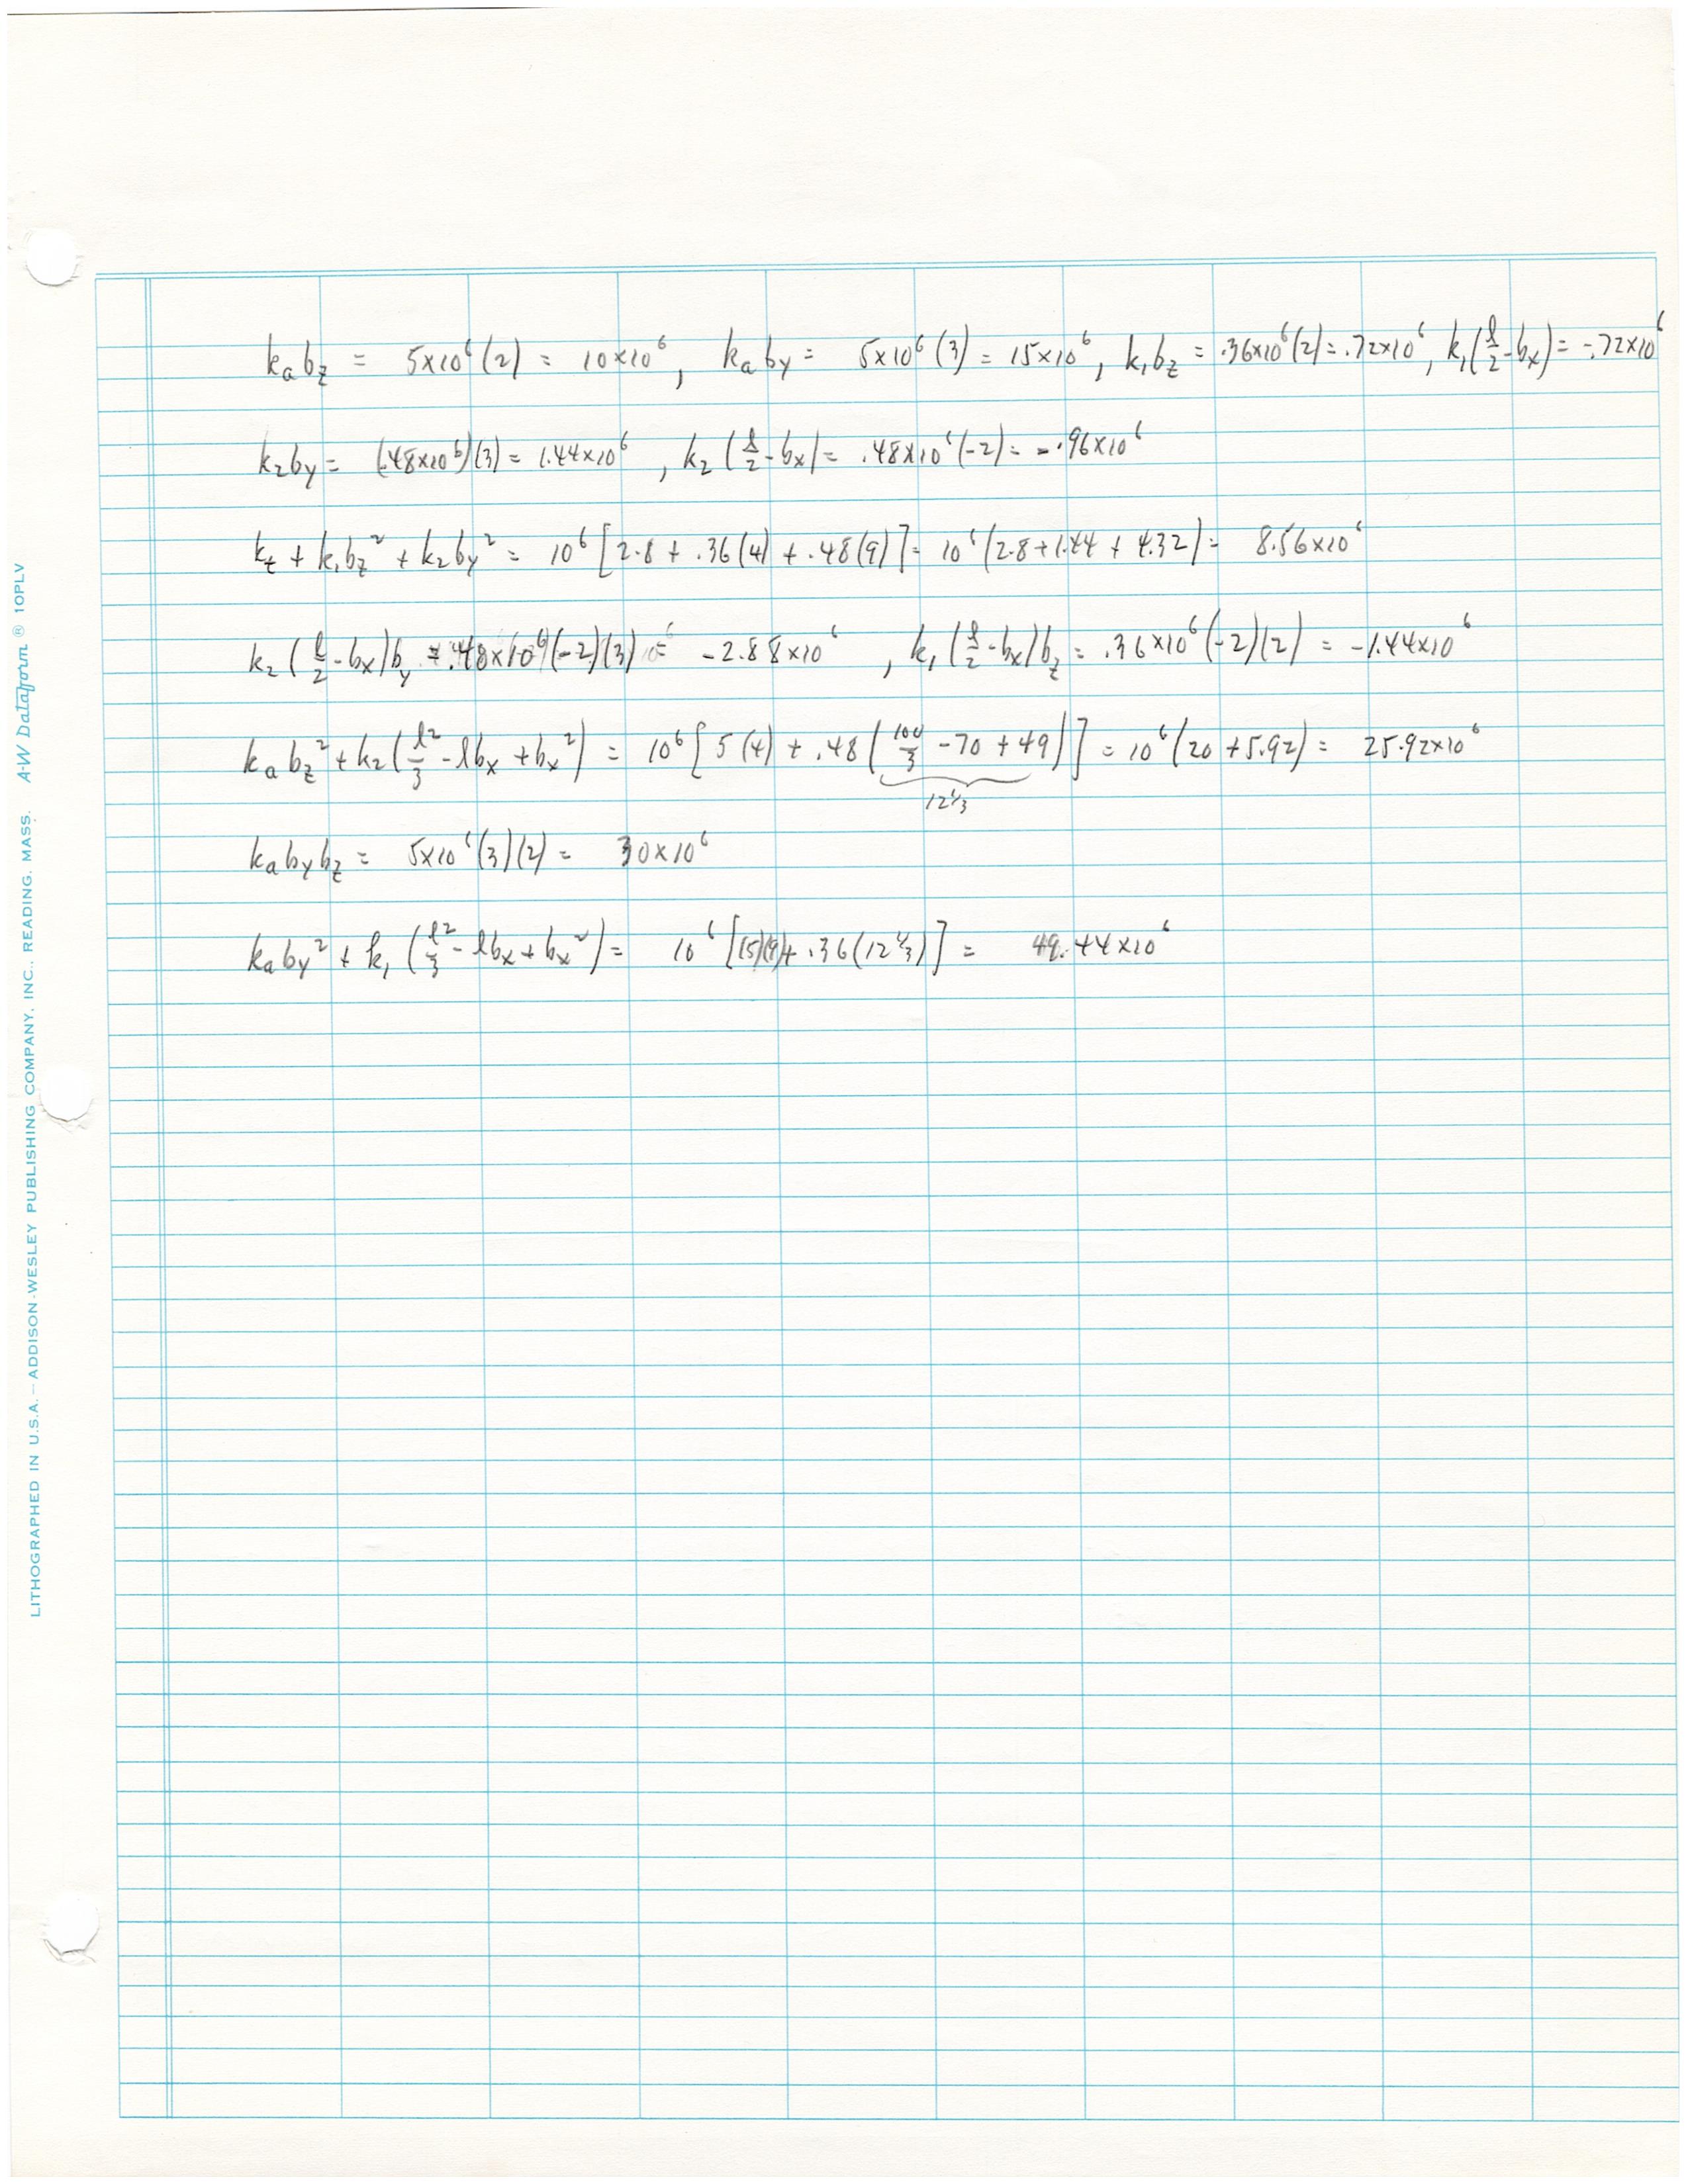 kₐb_z = 5×10⁶(2) = 10×10⁶, kₐb_y = 5×10⁶(3) = 15×10⁶, k₁b_z = .36×10⁶(2) = .72×10⁶, k₁(ℓ/2 - bₓ) = -.72×10⁶
k₂b_y = (.48×10⁶)(3) = 1.44×10⁶, k₂(ℓ/2 - bₓ) = .48×10⁶(-2) = -.96×10⁶
k_t + k₁b_z² + k₂b_y² = 10⁶[2.8 + .36(4) + .48(9)] = 10⁶(2.8 + 1.44 + 4.32) = 8.56×10⁶
k₂(ℓ/2 - bₓ)b_y = .48×10⁶(-2)(3) = -2.88×10⁶, k₁(ℓ/2 - bₓ)b_z = .36×10⁶(-2)(2) = -1.44×10⁶
kₐb_z² + k₂(ℓ²/3 - ℓbₓ + bₓ²) = 10⁶[5(4) + .48(100/3 - 70 + 49)] = 10⁶(20 + 5.92) = 25.92×10⁶
12 1/3
kₐb_yb_z = 5×10⁶(3)(2) = 30×10⁶
kₐb_y² + k₁(ℓ²/3 - ℓbₓ + bₓ²) = 10⁶[(5)(9) + .36(12 1/3)] = 49.44×10⁶
LITHOGRAPHED IN U.S.A. — ADDISON-WESLEY PUBLISHING COMPANY, INC., READING, MASS. A-W Dataform ® 10PLV